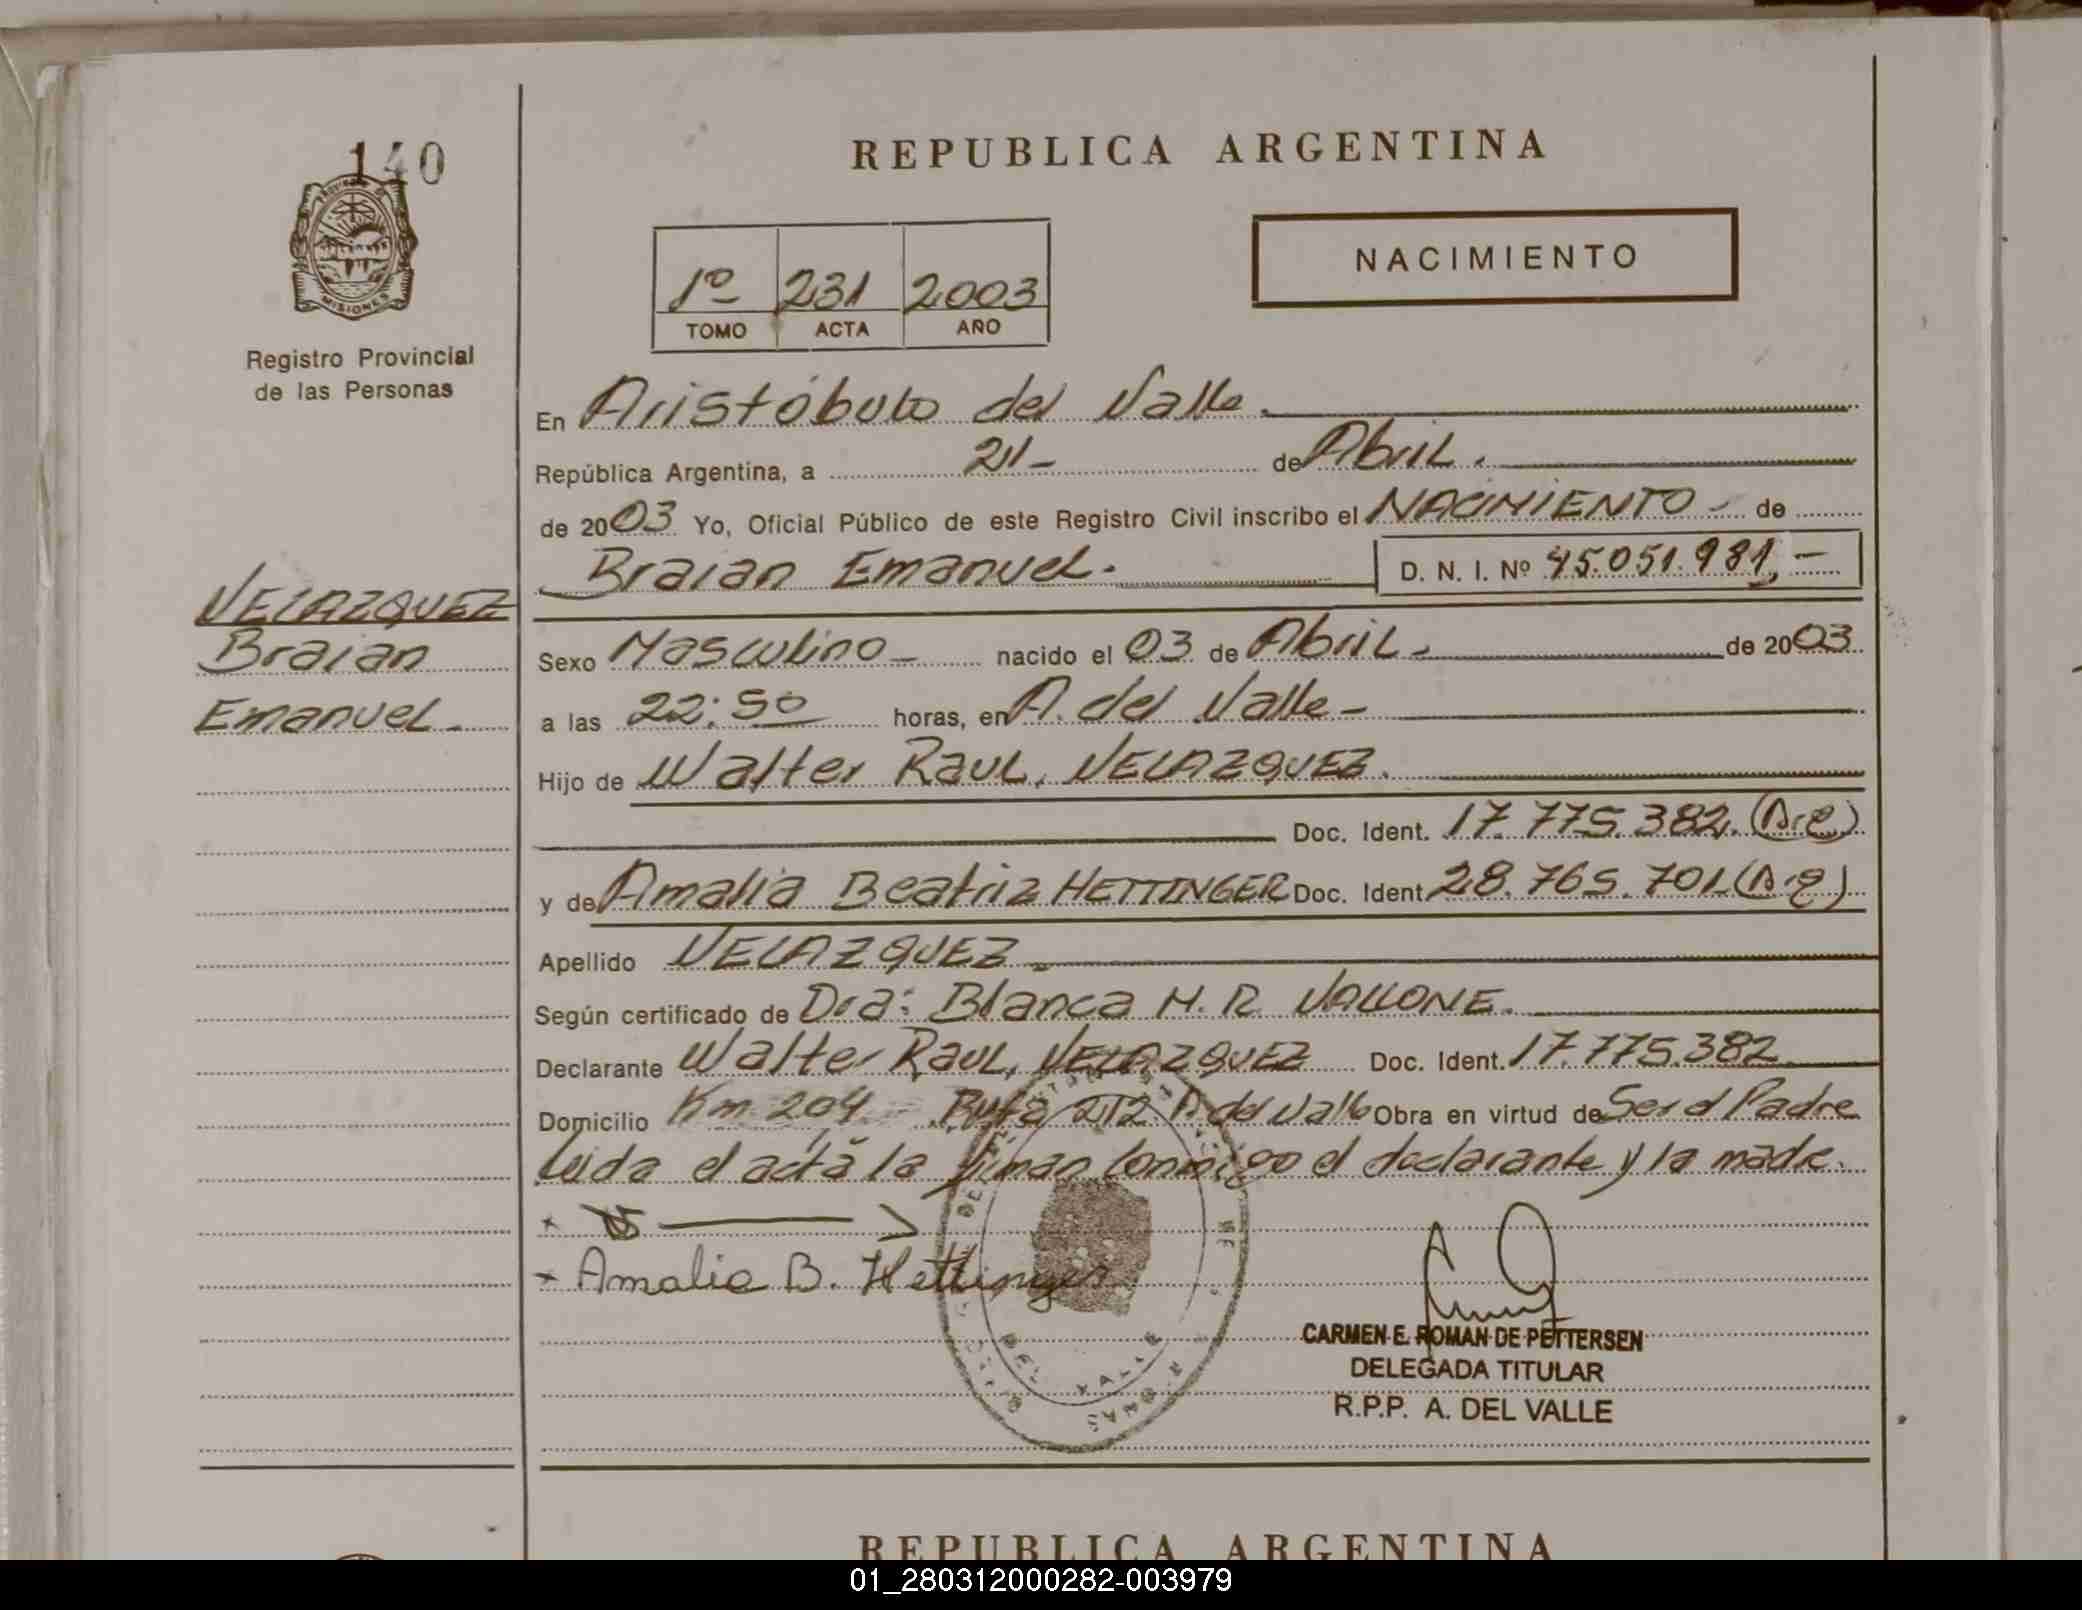 140
PROVINCIA DE
MISIONES
Registro Provincial
de las Personas
REPUBLICA ARGENTINA
NACIMIENTO
1º 231 2003
TOMO ACTA AÑO
En Aristóbulo del Valle.
República Argentina, a 21- de Abril.
de 2003 Yo, Oficial Público de este Registro Civil inscribo el NACIMIENTO - de
Braian Emanuel. D. N. I. Nº 45.051.981,-
VELAZQUEZ
Braian
Emanuel.
Sexo Masculino - nacido el 03 de Abril - de 2003
a las 22:50 horas, en A. del Valle -
Hijo de Walter Raul, VELAZQUEZ.
Doc. Ident. 17.775.382.
y de Amalia Beatriz HETTINGER Doc. Ident. 28.765.701
Apellido VELAZQUEZ -
Según certificado de Dra: Blanca M. R. VALLONE.
Declarante Walter Raul, VELAZQUEZ Doc. Ident. 17.775.382
Domicilio Km 204 - Ruta 212 A del Valle Obra en virtud de Ser el Padre
Leida el acta la firman conmigo el declarante y la madre.
Amalia B. Hettinger
DEL VALLE
CARMEN E. ROMAN DE PETTERSEN
DELEGADA TITULAR
R.P.P. A. DEL VALLE
REPUBLICA ARGENTINA
01_280312000282-003979